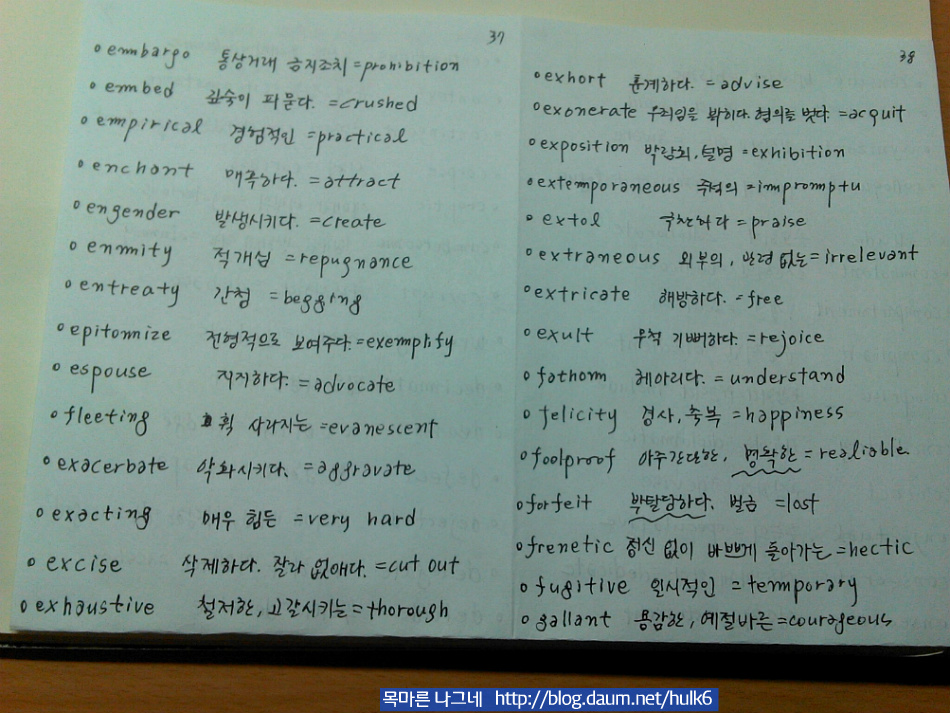 37
embargo 통상거래 금지조치 =prohibition
embed 깊숙이 파묻다. =crushed
empirical 경험적인 =practical
enchant 매혹하다. =attract
engender 발생시키다. =create
enmity 적개심 =repugnance
entreaty 간청 =begging
epitomize 전형적으로 보여주다. =exemplify
espouse 지지하다. =advocate
fleeting 휙 사라지는 =evanescent
exacerbate 악화시키다. =aggravate
exacting 매우 힘든 =very hard
excise 삭제하다. 잘라 없애다. =cut out
exhaustive 철저한, 고갈시키는 =thorough
38
exhort 훈계하다. =advise
exonerate 무죄임을 밝히다. 혐의를 벗다. =acquit
exposition 박람회, 설명 =exhibition
extemporaneous 즉석의 =impromptu
extol 극찬하다 =praise
extraneous 외부의, 관련 없는 =irrelevant
extricate 해방하다. =free
exult 무척 기뻐하다. =rejoice
fathom 헤아리다. =understand
felicity 경사, 축복 =happiness
foolproof 아주간단한, 명확한 =realiable
forfeit 박탈당하다. 벌금 =lost
frenetic 정신 없이 바쁘게 돌아가는 =hectic
fugitive 일시적인 =temporary
gallant 용감한, 예절바른 =courageous
목마른 나그네 http://blog.daum.net/hulk6